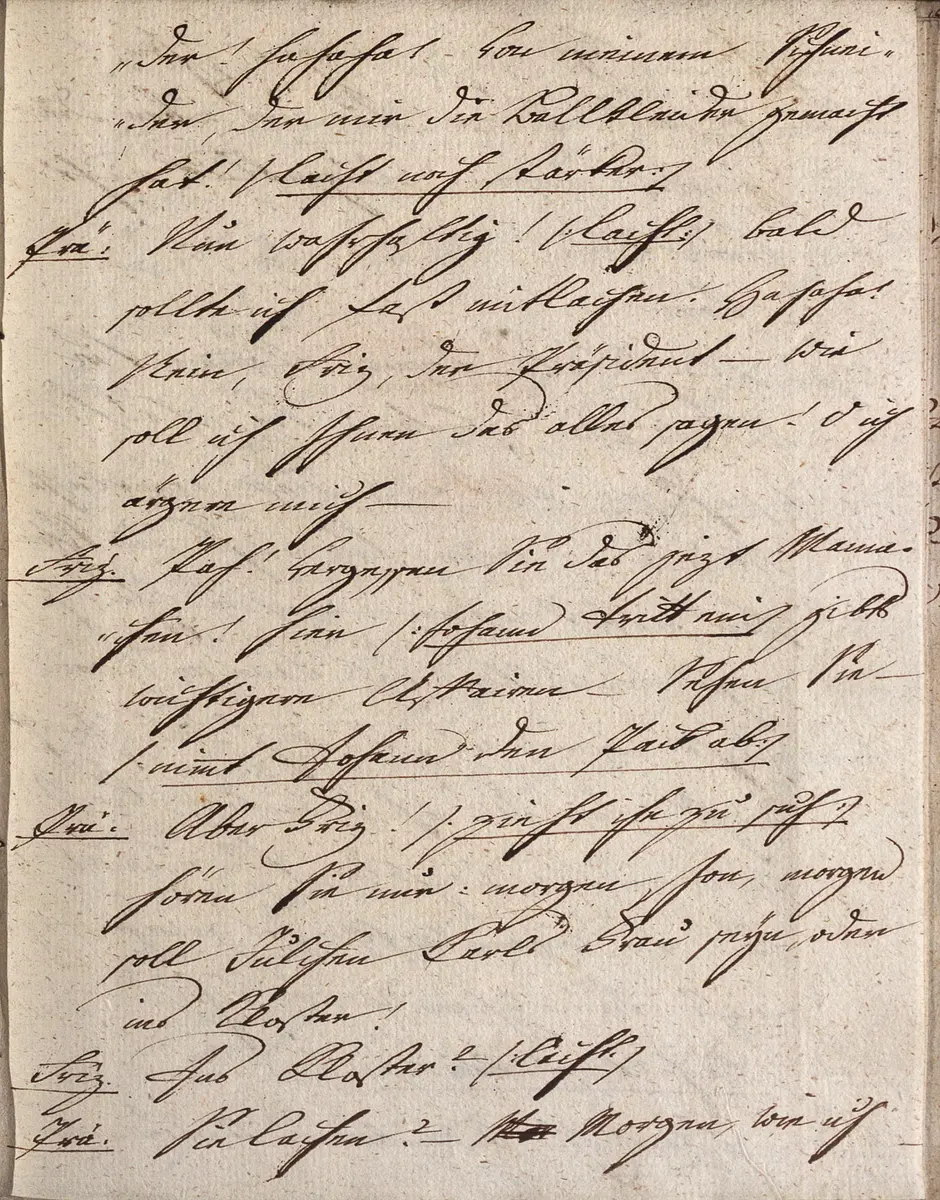 „der! hahaha! – Von meinem Schnei„
„der, der mir die Ballkleider gemacht
hat! /: lacht noch stärker :/
Prä: Nun wahrhaftig! /: lacht :/ bald
sollte ich fast mitlachen. Hahaha!
Nein, Friz, der Präsident — wie
soll ich Ihnen das alles sagen! O ich
ärgere mich —
Friz. Pah! Vergessen Sie das jezt Mama„
„chen! hier /: Johann tritt ein :/ gibts
wichtigere Affairen – Sehen Sie –
/: nimt Johann den Pack ab :/
Prä: Aber Friz! /: zieht ihn zu sich :/
hören Sie nur: morgen, schon, morgen
soll Julchen Carls Frau seyn, oder
ins Kloster!
Friz. Ins Kloster? – /: lacht :/
Prä: Sie lachen? – Morgen, wie ich